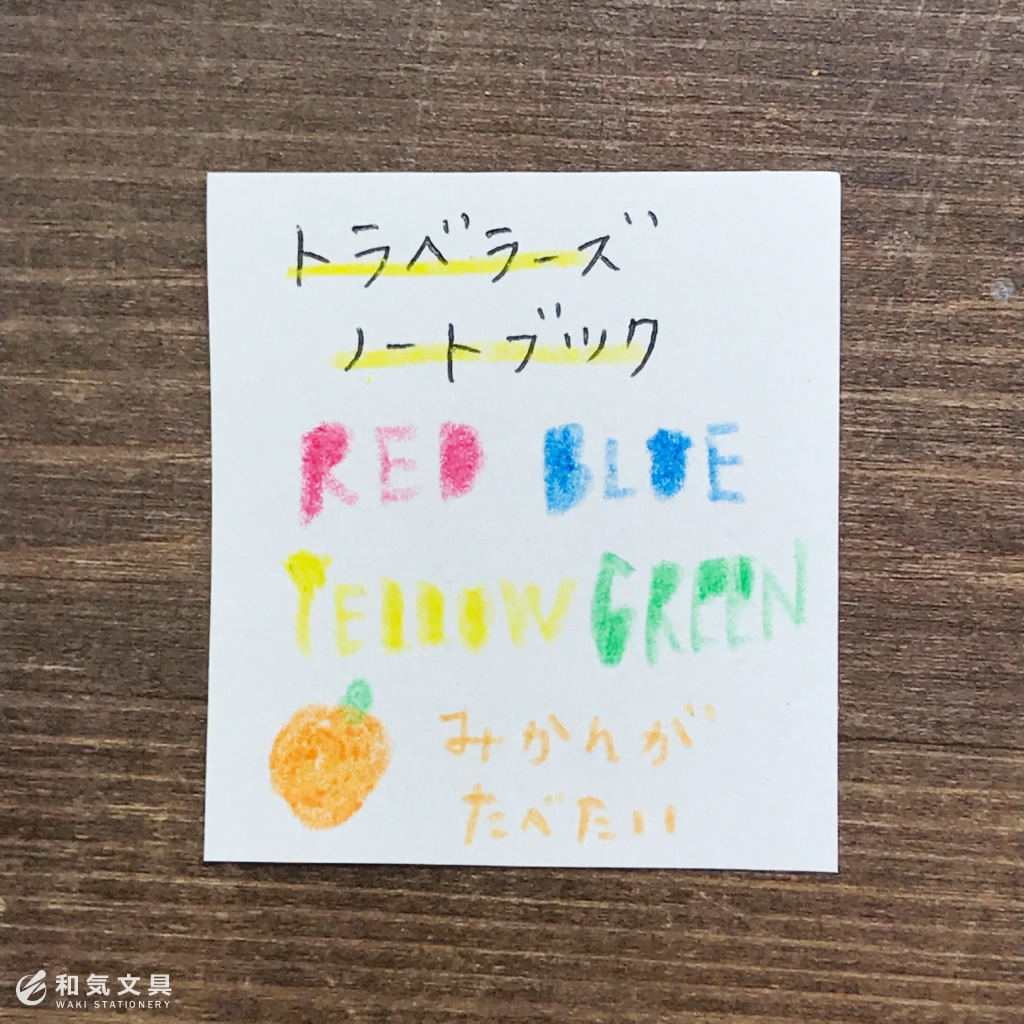 トラベラーズ
ノートブック
RED BLUE
YELLOW GREEN
みかんが
たべたい
和気文具
WAKI STATIONERY